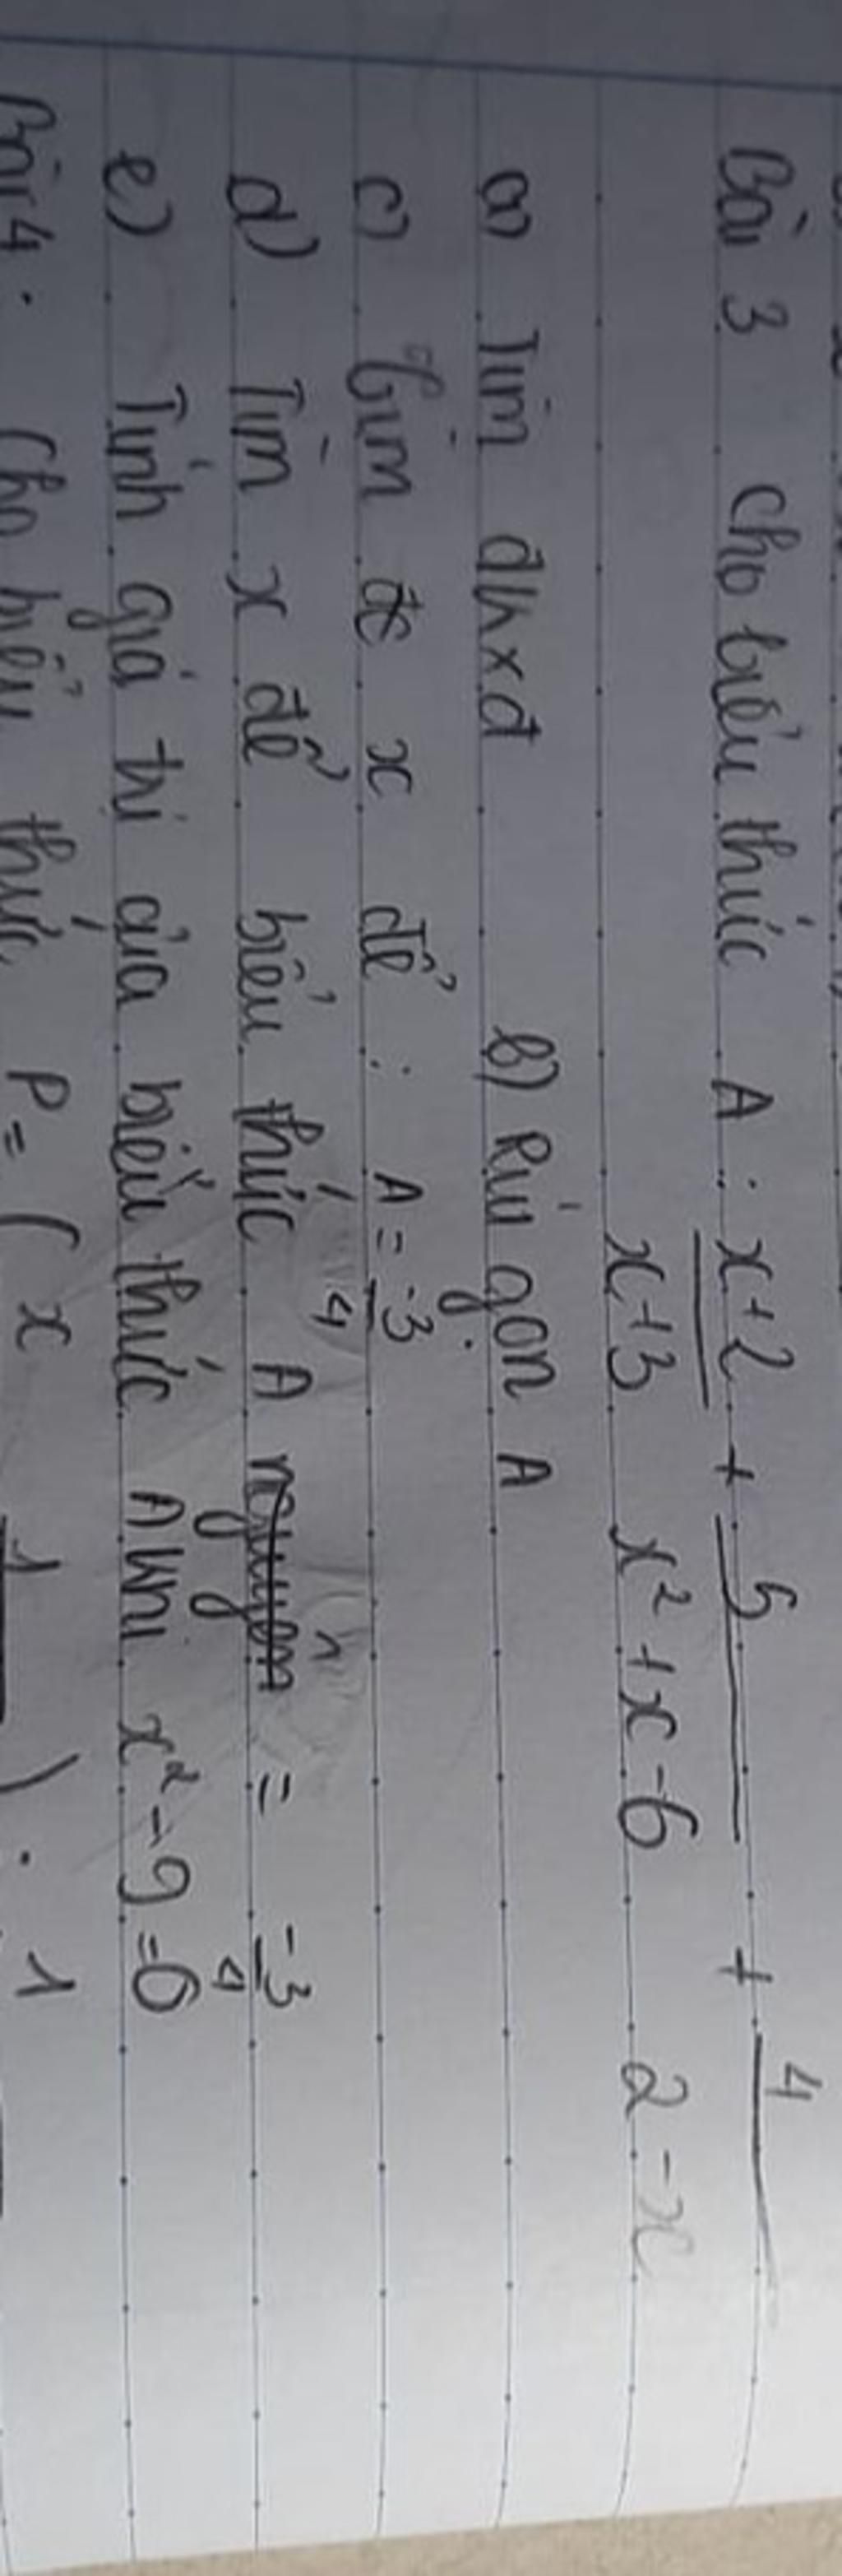 Bài 3 cho biểu thức A : x+2 + 5 + 4
x+3 x² + x - 6 2 - x
a) Tìm đkxđ b) Rút gọn A
c) Tìm x để : A = -3
4
d) Tìm x để biểu thức A = -3
4
e) Tính giá trị của biểu thức A khi x² - 9 = 0
Bài 4 . Cho biểu thức P = ( x 1 ) : 1